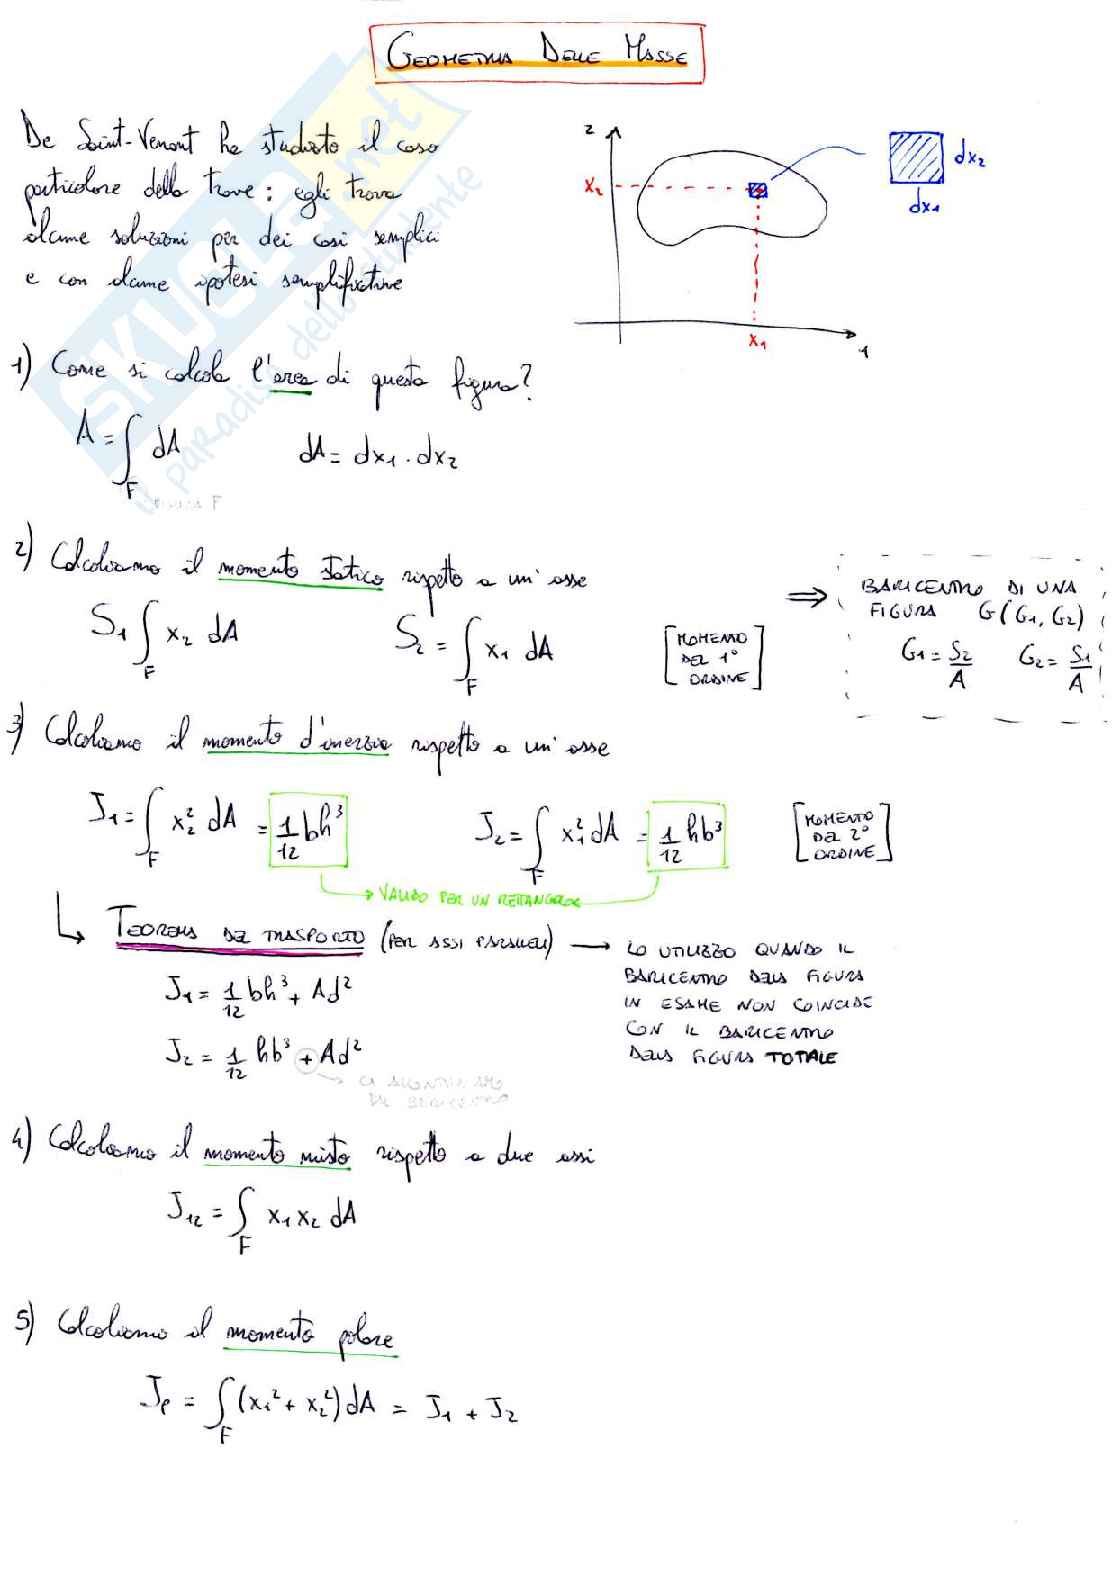 GEOMETRIA DELLE MASSE
De Saint-Venant ha studiato il caso
particolare della trave: egli trova
alcune soluzioni per dei casi semplici
e con alcune ipotesi semplificative
2
x2
x1
1
dx2
dx1
1) Come si calcola l'area di questa figura?
A = ∫F dA dA = dx1 · dx2
F
2) Calcoliamo il momento statico rispetto a un' asse
S1 ∫F x2 dA S2 = ∫F x1 dA
[MOMENTO
DEL 1°
ORDINE]
⇒ BARICENTRO DI UNA
FIGURA G(G1, G2)
G1 = S2/A G2 = S1/A
3) Calcoliamo il momento d'inerzia rispetto a un' asse
J1 = ∫F x2² dA = 1/12 bh³ J2 = ∫F x1² dA = 1/12 hb³
[MOMENTO
DEL 2°
ORDINE]
→ VALIDO PER UN RETTANGOLO
↳ TEOREMA DEL TRASPORTO (PER ASSI PARALLELI) →
LO UTILIZZO QUANDO IL
BARICENTRO DELLA FIGURA
IN ESAME NON COINCIDE
CON IL BARICENTRO
DELLA FIGURA TOTALE
J1 = 1/12 bh³ + Ad²
J2 = 1/12 hb³ + Ad²
→ CI ALLONTANIAMO
DAL BARICENTRO
4) Calcoliamo il momento misto rispetto a due assi
J12 = ∫F x1 x2 dA
5) Calcoliamo il momento polare
Jp = ∫F (x1² + x2²) dA = J1 + J2
SKUOLA.net
il paradiso dello studente